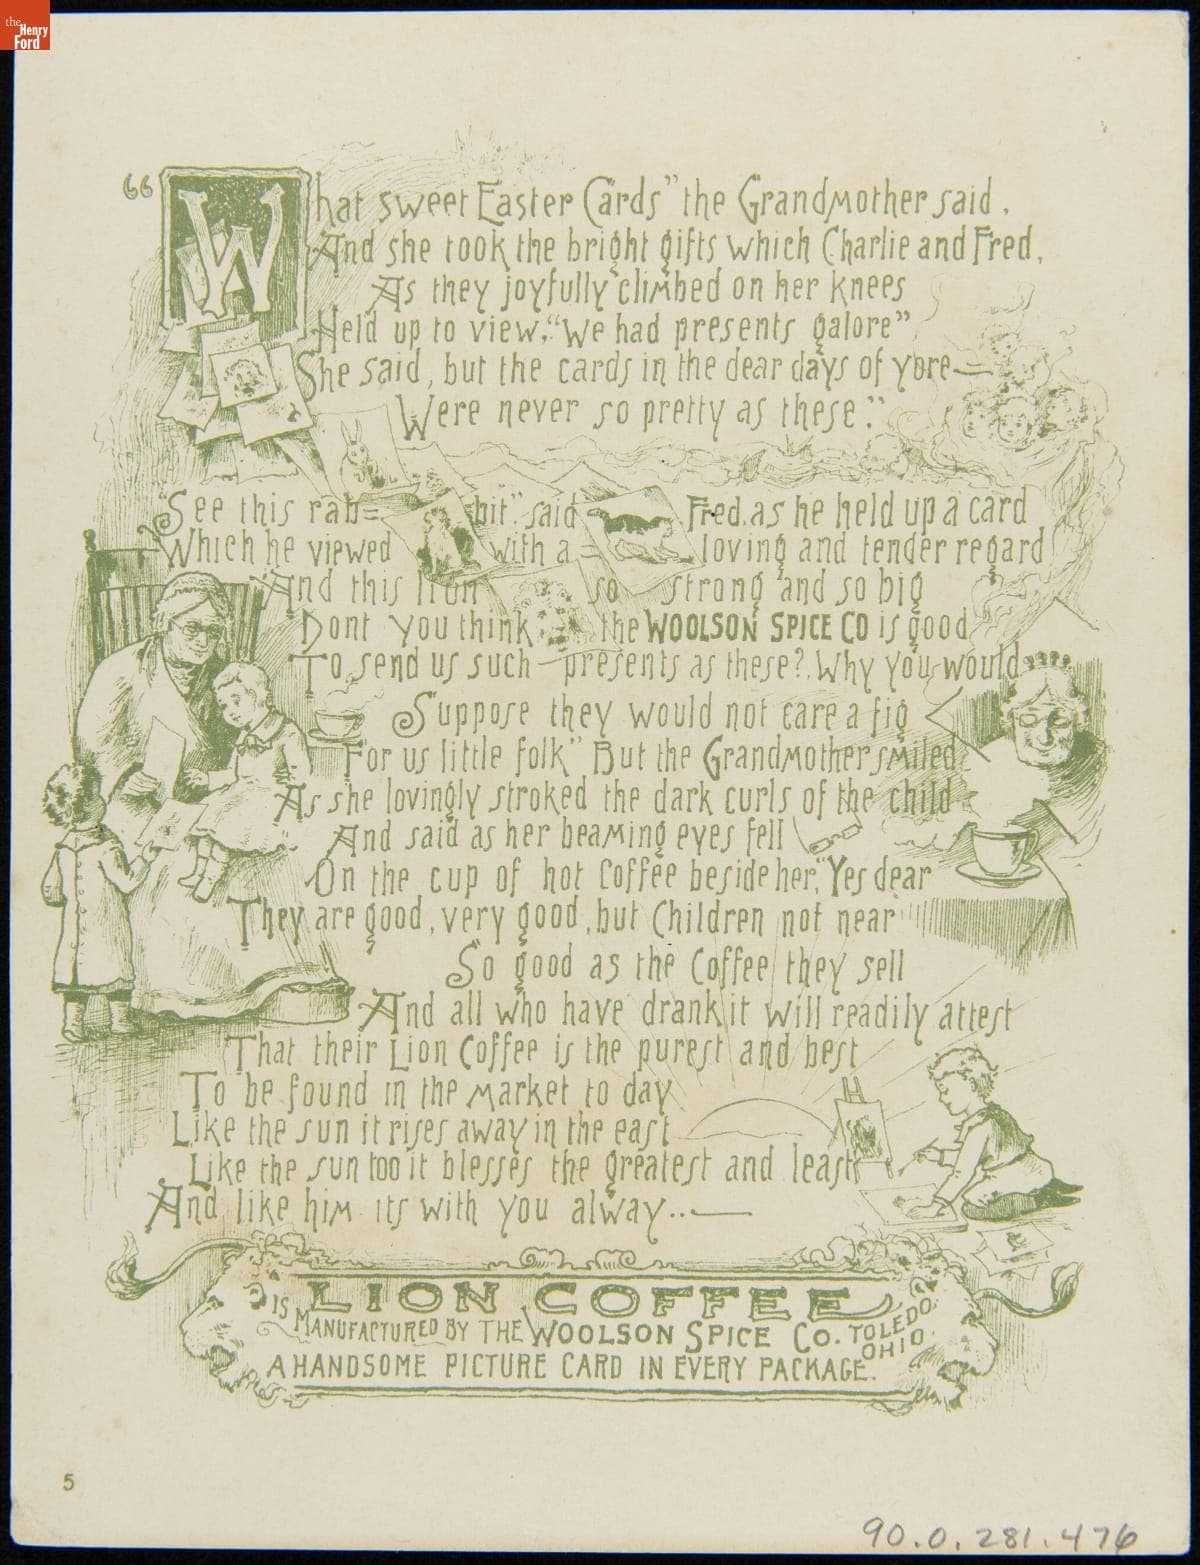 the Henry Ford
“What sweet Easter Cards” the Grandmother said.
And she took the bright gifts which Charlie and Fred,
As they joyfully climbed on her knees
Held up to view, “We had presents galore”
She said, but the cards in the dear days of yore—
Were never so pretty as these.”
“See this rab=bit.” said Fred. as he held up a card
Which he viewed with a = loving and tender regard
“And this lion so strong and so big
Dont you think the WOOLSON SPICE CO is good
To send us such presents as these? Why you would
Suppose they would not care a fig
For us little folk” But the Grandmother smiled
As she lovingly stroked the dark curls of the child
And said as her beaming eyes fell
On the cup of hot Coffee beside her, “Yes dear
They are good, very good, but Children not near
So good as the Coffee they sell
And all who have drank it will readily attest
That their Lion Coffee is the purest and best
To be found in the market to day
Like the sun it rises away in the east
Like the sun too it blesses the greatest and least
And like him its with you alway..—
LION COFFEE
IS MANUFACTURED BY THE WOOLSON SPICE CO. TOLEDO. OHIO.
A HANDSOME PICTURE CARD IN EVERY PACKAGE.
5
90.0.281.476